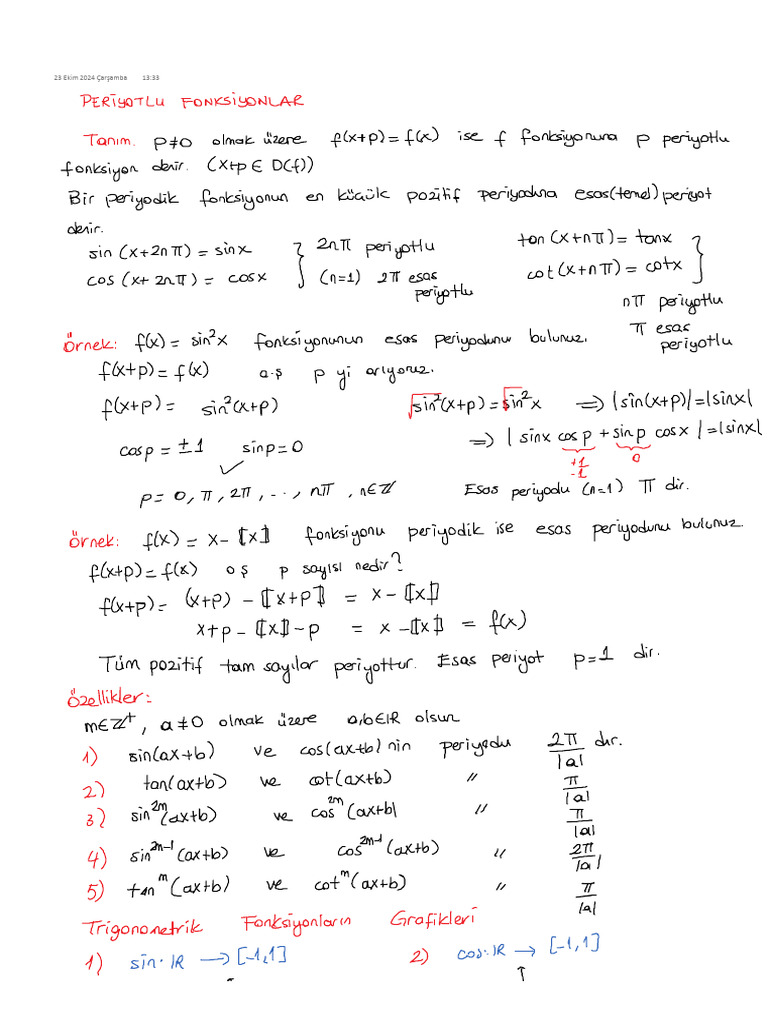 23 Ekim 2024 Çarşamba 13:33
PERİYOTLU FONKSİYONLAR
Tanım. p≠0 olmak üzere f(x+p)=f(x) ise f fonksiyonuna p periyotlu
fonksiyon denir. (x+p ∈ D(f))
Bir periyodik fonksiyonun en küçük pozitif periyoduna esas(temel) periyot
denir.
sin(x+2nπ)=sinx } 2nπ periyotlu tan(x+nπ)=tanx }
cos(x+2nπ)=cosx (n=1) 2π esas periyotlu cot(x+nπ)=cotx
nπ periyotlu
π esas periyotlu
Örnek: f(x)=sin²x fonksiyonunun esas periyodunu bulunuz.
f(x+p)=f(x) o.ş p yi arıyoruz.
f(x+p)= sin²(x+p) √sin²(x+p)=√sin²x ⟹ |sin(x+p)|=|sinx|
cosp=±1 sinp=0 ⟹ |sinx cosp + sinp cosx|=|sinx|
✓ +1 -1 0
p=0,π,2π,...,nπ,n∈ℤ Esas periyodu (n=1) π dir.
Örnek: f(x)=x-⟦x⟧ fonksiyonu periyodik ise esas periyodunu bulunuz.
f(x+p)=f(x) o.ş p sayısı nedir?
f(x+p)=(x+p)-⟦x+p⟧ = x-⟦x⟧
x+p-⟦x⟧-p = x-⟦x⟧ = f(x)
Tüm pozitif tam sayılar periyottur. Esas periyot p=1 dir.
Özellikler:
m∈ℤ⁺, a≠0 olmak üzere a,b∈ℝ olsun
1) sin(ax+b) ve cos(ax+b) nin periyodu 2π/|a| dır.
2) tan(ax+b) ve cot(ax+b) " π/|a|
3) sin²ᵐ(ax+b) ve cos²ᵐ(ax+b) " π/|a|
4) sin²ᵐ⁻¹(ax+b) ve cos²ᵐ⁻¹(ax+b) " 2π/|a|
5) tanᵐ(ax+b) ve cotᵐ(ax+b) " π/|a|
Trigonometrik Fonksiyonların Grafikleri
1) sin: ℝ → [-1,1] 2) cos: ℝ → [-1,1]